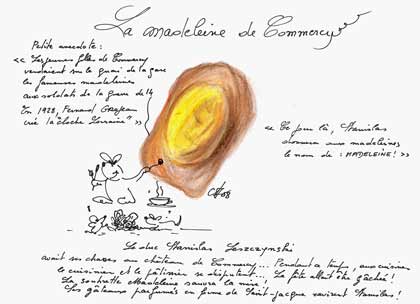 La madeleine de Commercy
Petite anecdote :
« Les jeunes filles de Commercy
vendaient sur le quai de la gare
les fameuses madeleines
aux soldats de la guerre de 14
En 1928, Fernand Grojean
crée la "cloche lorraine" »
« Ce jour là, Stanislas
donnera aux madeleines
le nom de : MADELEINE ! »
08
Le duc Stanislas Leszczynski
avait ses chasses au château de Commercy... Pendant ce temps, aux cuisines
le cuisinier et le pâtissier se disputent... La fête allait être gâchée !
La soubrette Madeleine sauvera la mise !
Ses gâteaux parfumés en forme de Saint-Jacques ravirent Stanislas !